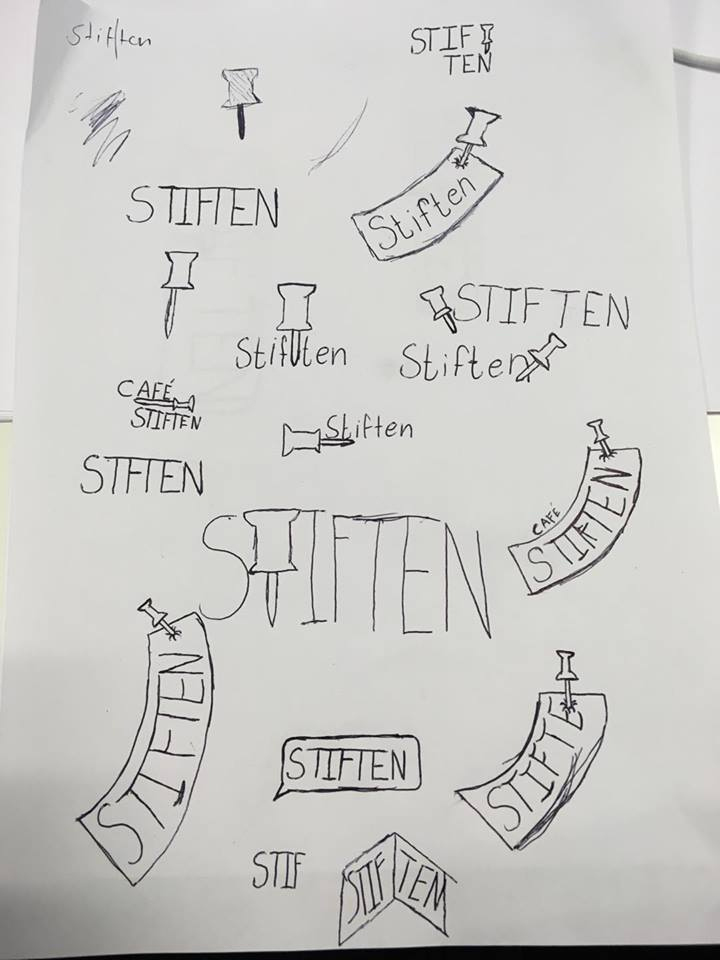 Stiften
STIF
TEN
Stiften
STIFTEN
STIFTEN
Stiften
Stiften
CAFÉ
STIFTEN
Stiften
STFTEN
CAFÉ
STIFTEN
STIFTEN
STIFTEN
STIFTE
STIFTEN
STIF
STIF TEN